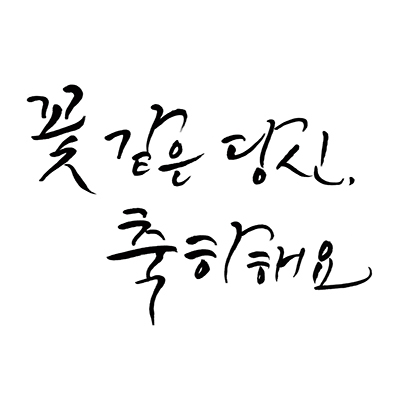 꽃 같은 당신,
축하해요